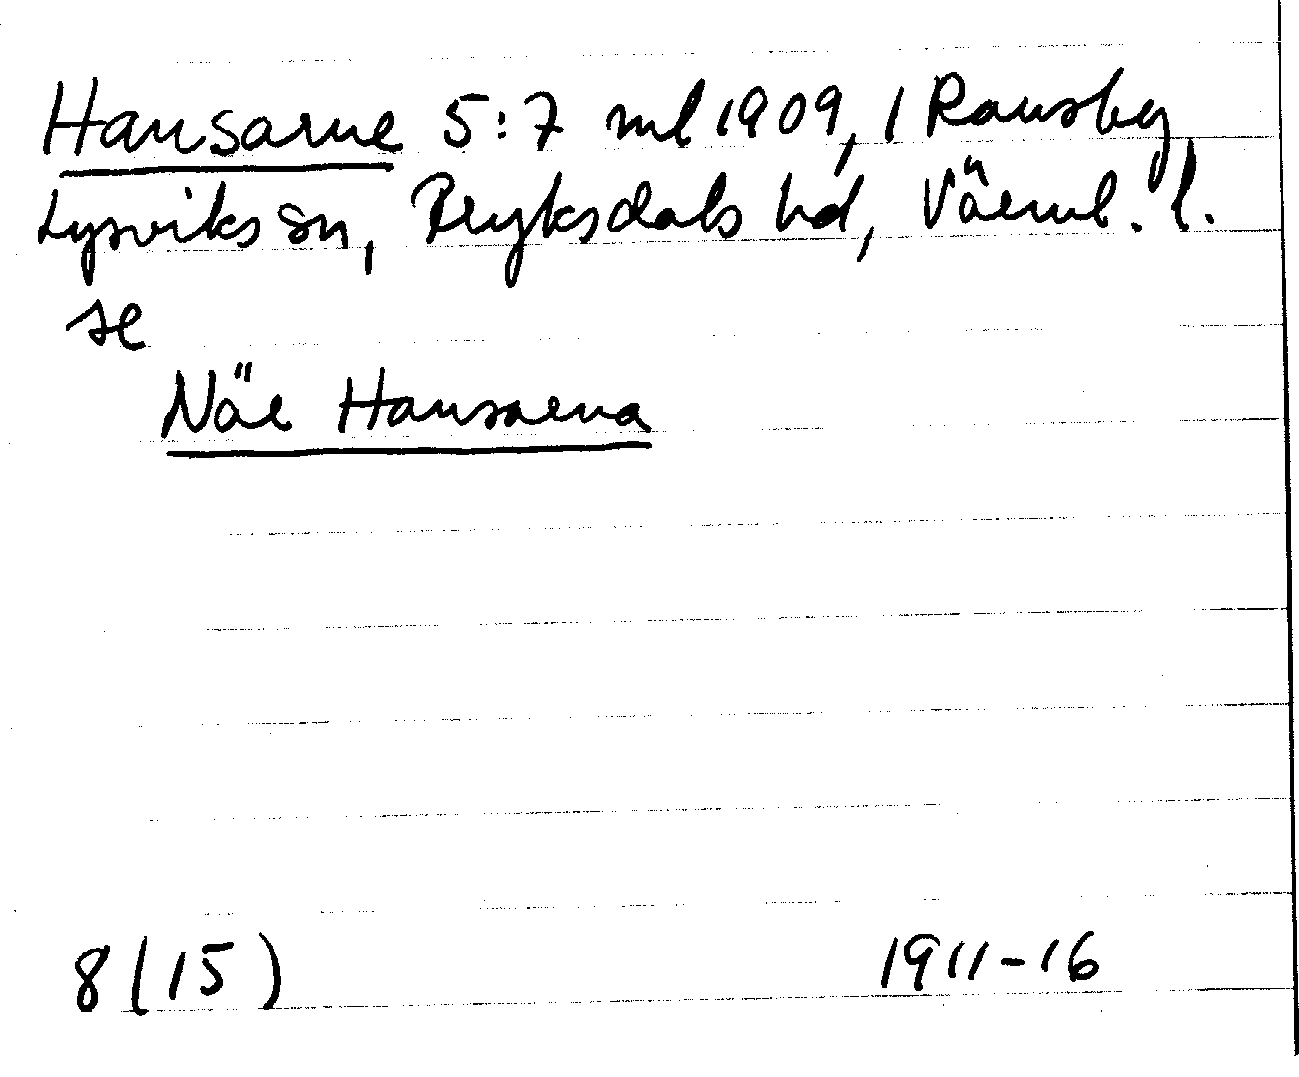 Hansarne 5:7 ml 1909, 1 Ransby
Lysviks sn, Fryksdals hd, Värml. l.
se
När Hansarna
8(15) 1911-16